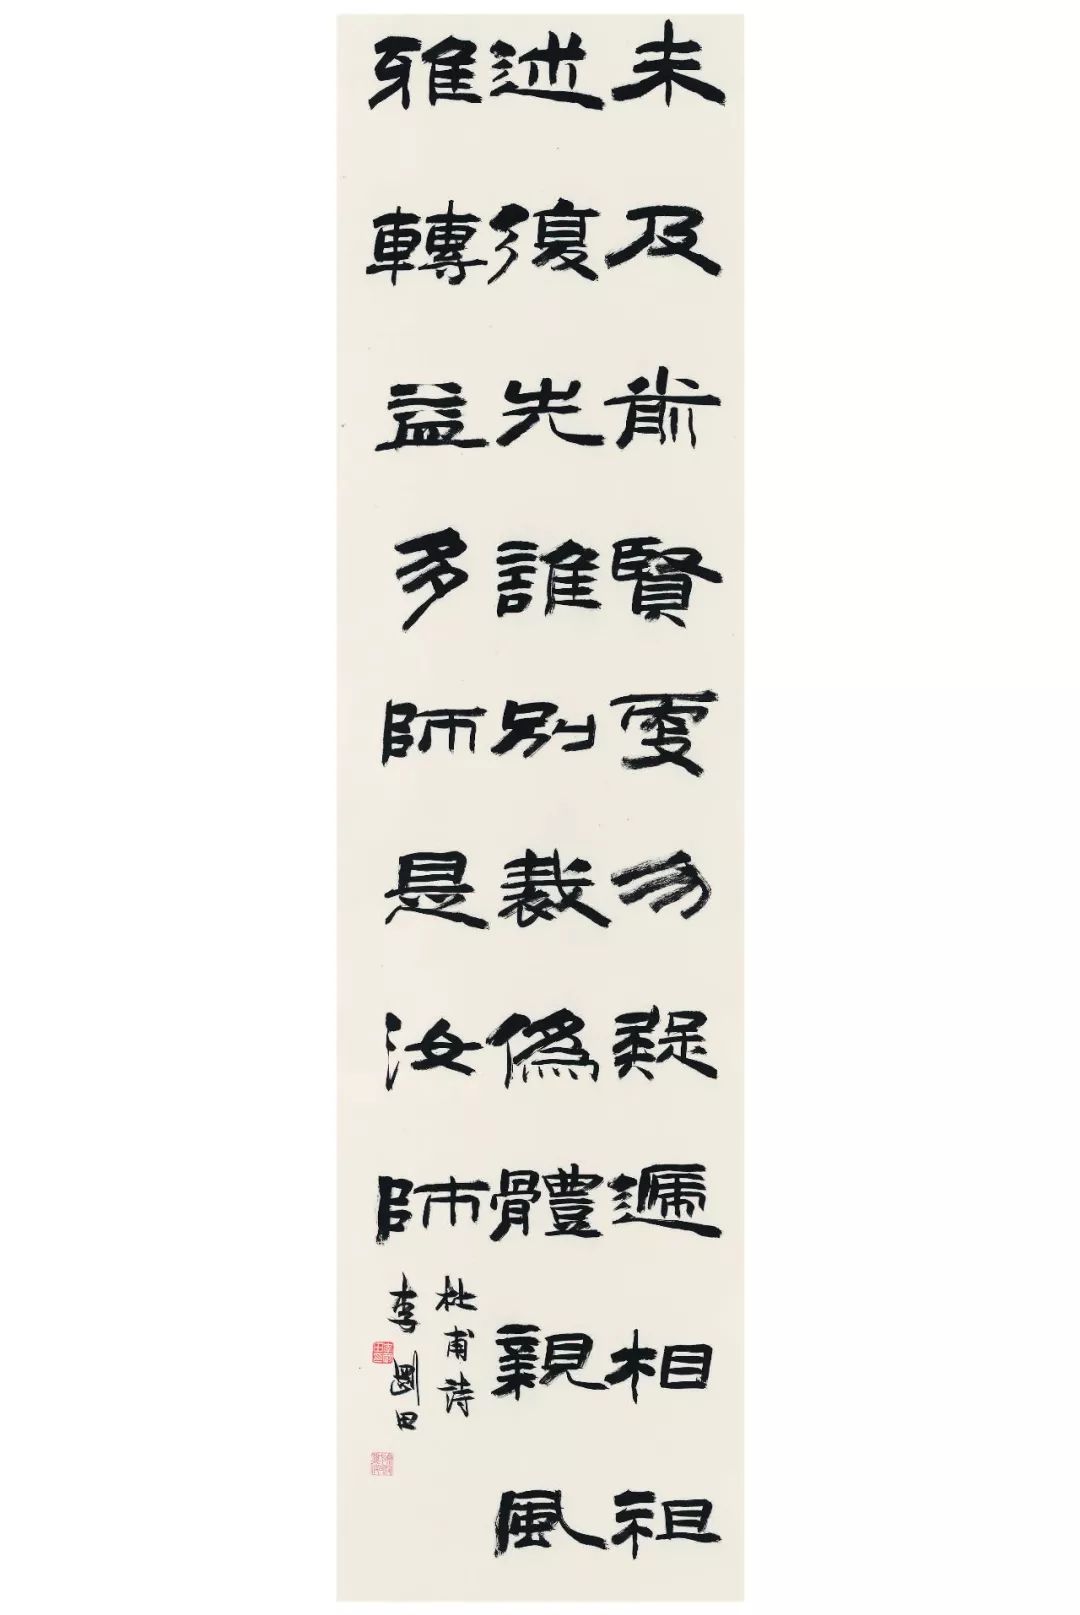 未及前賢更勿疑遞相祖
述復先誰別裁偽體親風
雅轉益多師是汝師
杜甫詩
李剛田